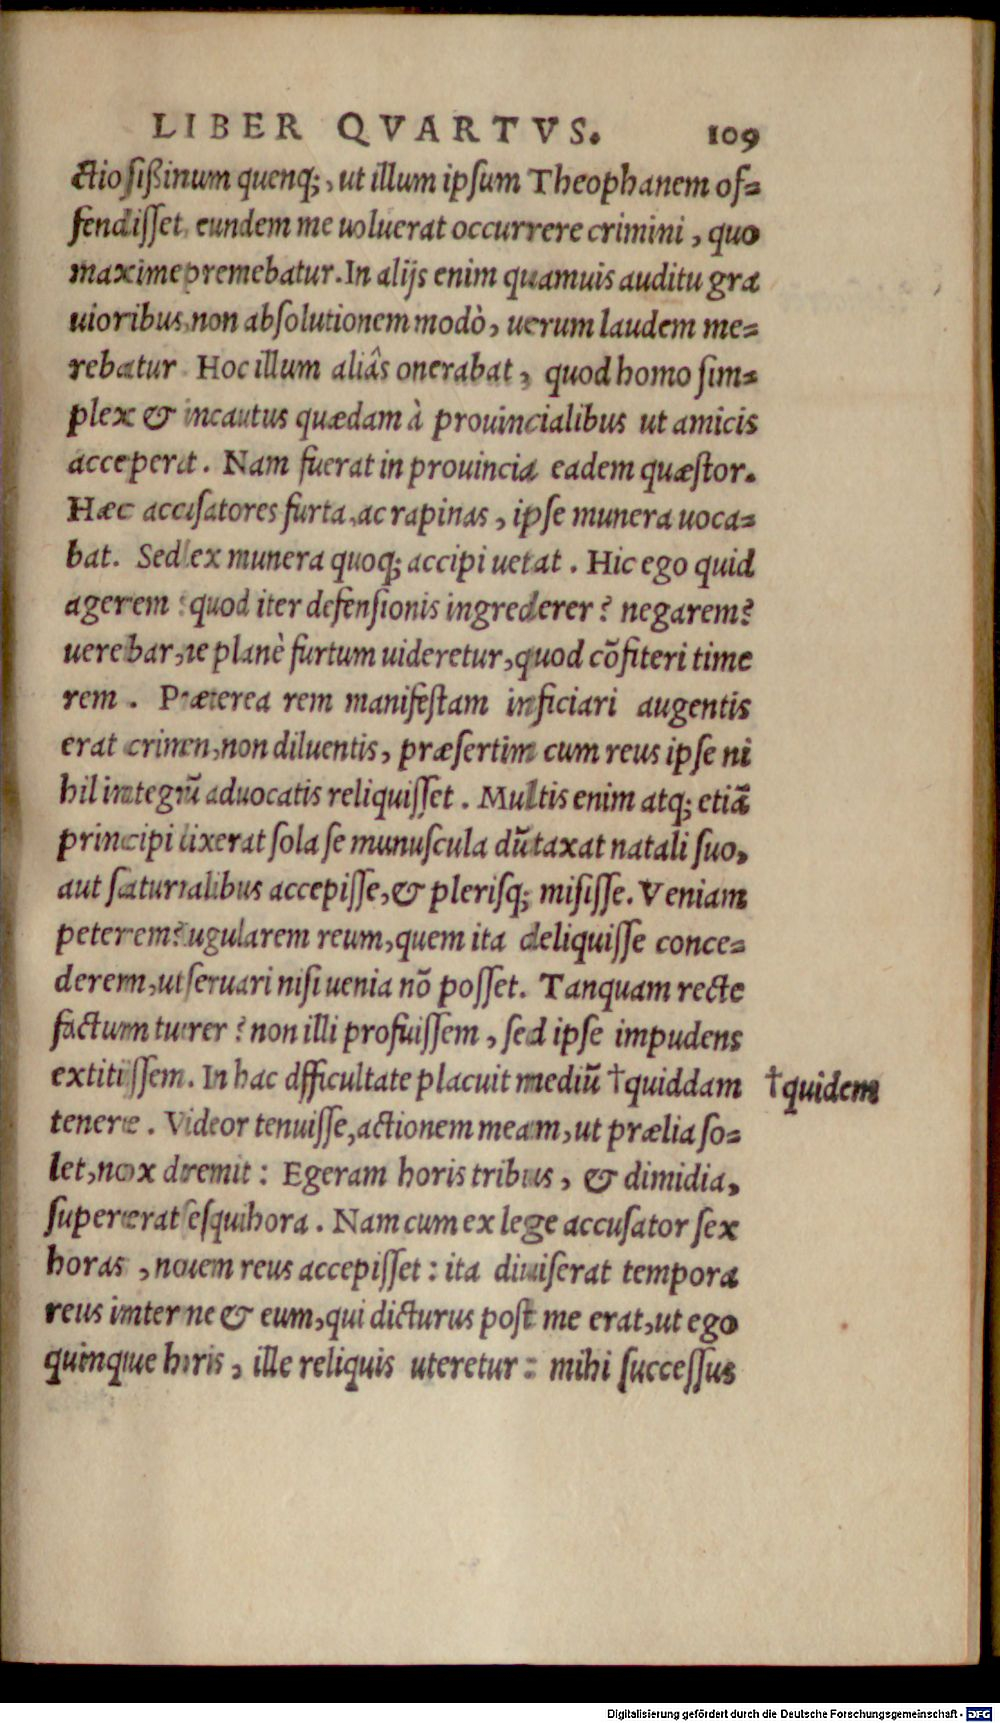 LIBER QVARTVS. 109
ctiosißinum quenq;, ut illum ipsum Theophanem of=
fendisset, eundem me uoluerat occurrere crimini, quo
maxime premebatur. In alijs enim quamuis auditu gra
uioribus, non absolutionem modò, uerum laudem me=
rebatur. Hoc illum aliâs onerabat, quod homo sim=
plex & incautus quædam à prouincialibus ut amicis
acceperat. Nam fuerat in prouincia eadem quæstor.
Hæc accusatores furta, ac rapinas, ipse munera uoca=
bat. Sed lex munera quoq; accipi uetat. Hic ego quid
agerem? quod iter defensionis ingrederer? negarem?
uerebar, ne planè furtum uideretur, quod cõfiteri time
rem. Præterea rem manifestam inficiari augentis
erat crimen, non diluentis, præsertim cum reus ipse ni
hil integrũ aduocatis reliquisset. Multis enim atq; etiã
principi dixerat sola se munuscula dũtaxat natali suo,
aut saturnalibus accepisse, & plerisq; misisse. Veniam
peterem? iugularem reum, quem ita deliquisse conce=
derem, ut seruari nisi uenia nõ posset. Tanquam recte
factum tuerer? non illi profuissem, sed ipse impudens
extitissem. In hac difficultate placuit mediũ †quiddam †quidem
tenere. Videor tenuisse, actionem meam, ut prælia so=
let, nox diremit: Egeram horis tribus, & dimidia,
supererat sesquihora. Nam cum ex lege accusator sex
horas, nouem reus accepisset: ita diuiserat tempora
reus inter me & eum, qui dicturus post me erat, ut ego
quinque horis, ille reliquis uteretur: mihi successus
Digitalisierung gefördert durch die Deutsche Forschungsgemeinschaft - DFG